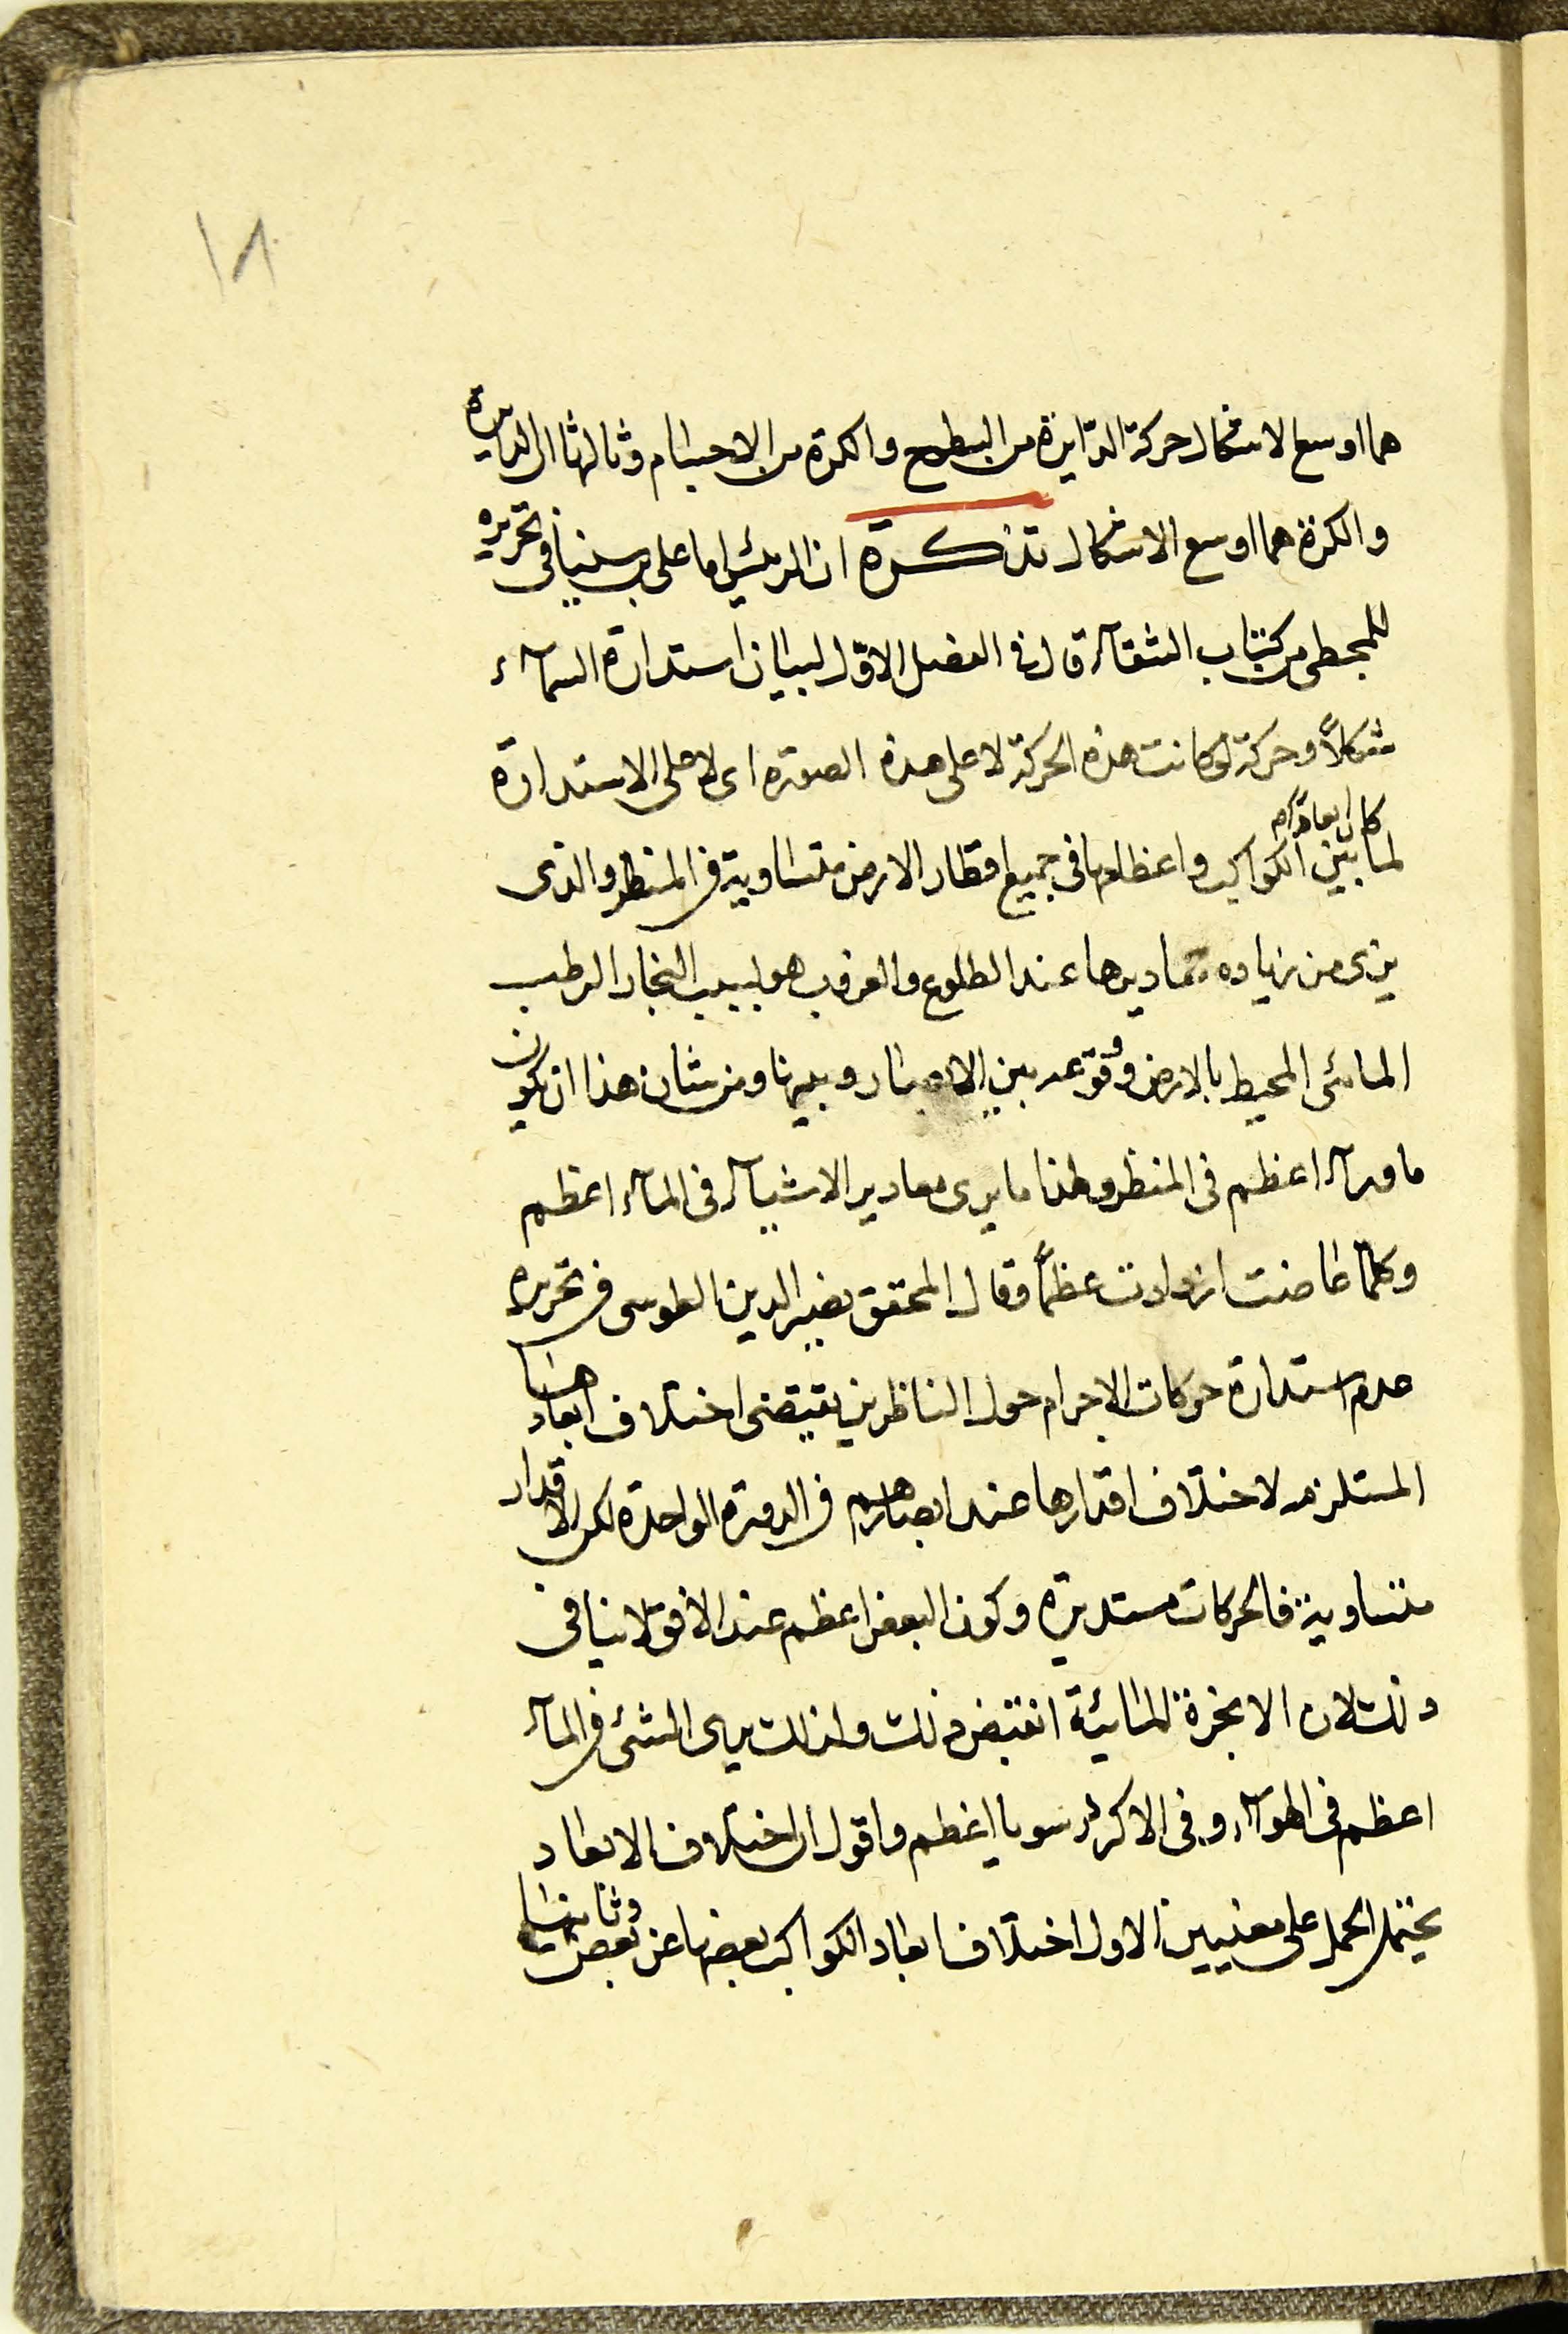 ١٨
هما اوسع الاشكال حركة الدّايرة من السطوح والكرة من الاجسام وثالثها ان الدايرة
والكرة هما اوسع الاشكال تذكرة ان الرئيس ابا على بن سينا فى تحريره
للمجطى من كتاب الشفآء قال فى الفصل الاوّل لبيان استدارة السمآء
شكلاً وحركة لو كانت هذه الحركة لا على هذه الصورة اى لا على الاستدارة
لما كان ابعاد بين الكواكب واعظامها فى جميع اقطار الارض متساوية فى المنظر والذى
يرى من زياده مقاديرها عند الطلوع والغروب هو لسبب البخار الرطب
المائى المحيط بالارض ووقوعه بين الابصار وبينها ومن شان هذا ان يكون
ما ورآه اعظم فى المنظر ولهذا ما يرى مقادير الاشيآء فى المآء اعظم
وكلما غاصت ازدادت عظماً وقال المحقق نصير الدين الطوسى فى تحريره
عدم استدارة حركات الاجرام حول الناظرين يقتضى اختلاف ابعادها
المستلزم لاختلاف اقدارها عند ابصارهم فى الدورة الواحدة لكن الاقدار
متساوية فالحركات مستديرة وكون البعض اعظم عند الافق لا ينافى
ذلك لان الابخرة المائية اقتضى ذلك ولذلك يرى الشئ فى المآء
اعظم فى الهوآء وفى الاكثر رسوبا اعظم واقول ان اختلاف الابعاد
يحتمل الحمل على معنيين الاول اختلاف ابعاد الكواكب بعضها عن بعض وثانيها